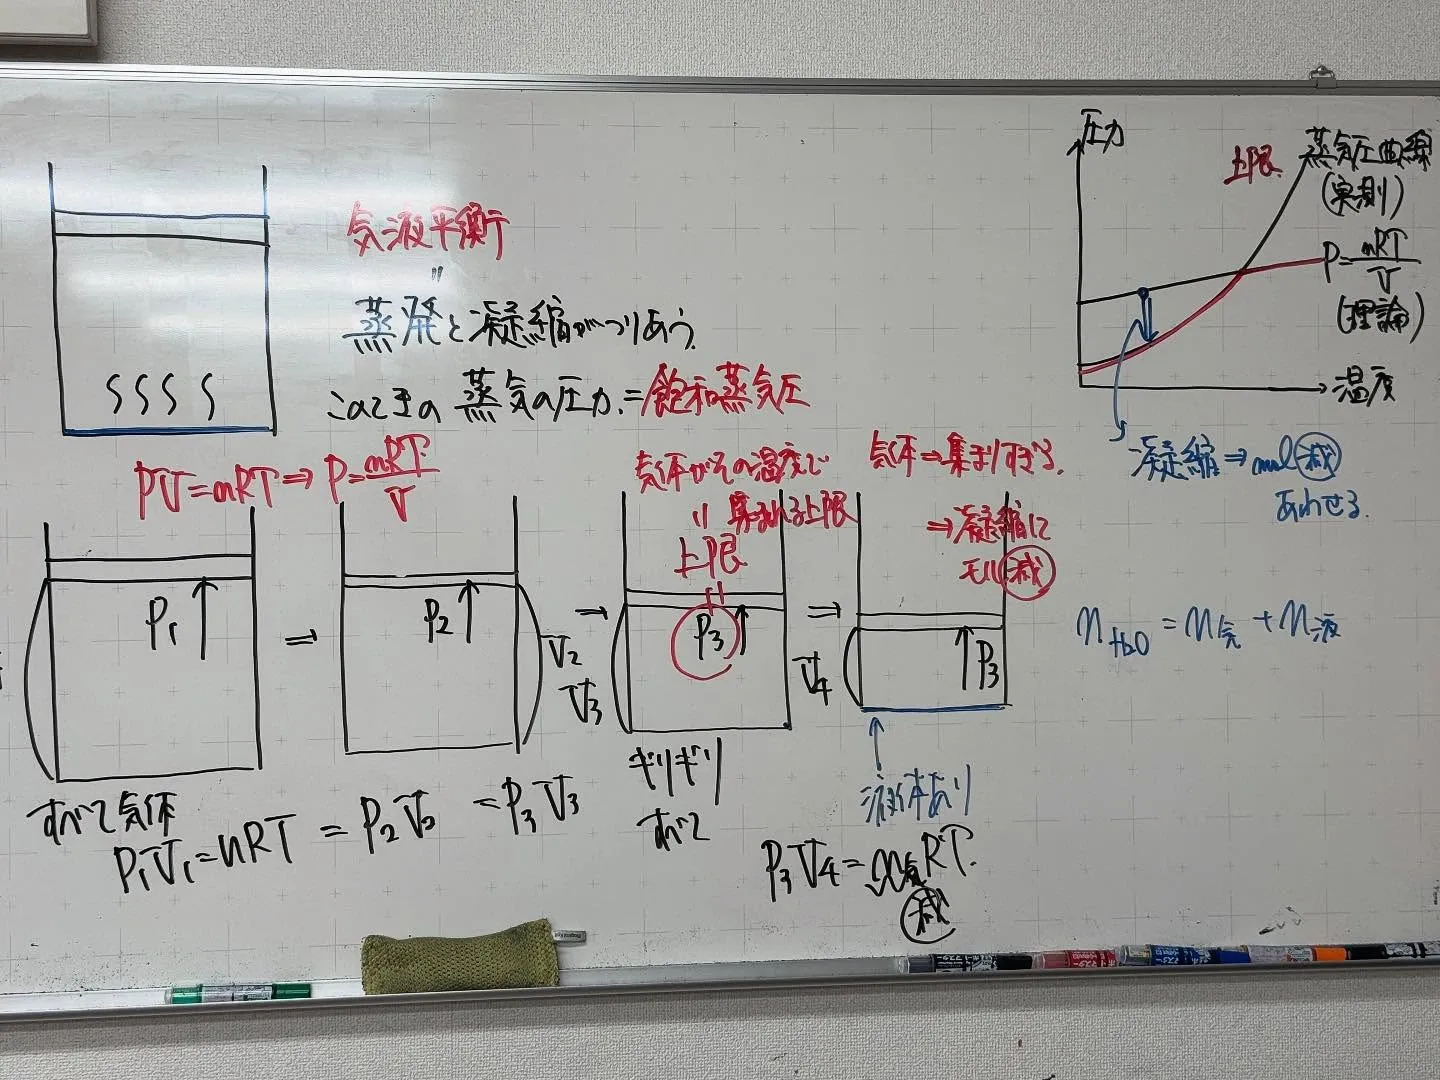 気液平衡
〃
蒸発と凝縮がつりあう
このときの 蒸気の圧力=飽和蒸気圧
PV=nRT⇒P=nRT/V
P₁
⇒
P₂
V₂
→
気体がその温度で
集まれる上限
〃
上限
V₃
P₃
⇒
気体⇒集まりすぎる.
⇒凝縮して
モル減
V₄
P₃
すべて気体
P₁V₁=nRT = P₂V₂ = P₃V₃
ギリギリ
すべて
液体あり
P₃V₄=n気RT.
減
圧力
上限
蒸気圧曲線
(実測)
P=nRT/V
(理論)
温度
凝縮⇒mol減
あわせる.
nH₂O=n気+n液